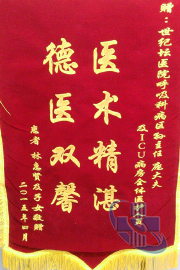 赠：世纪坛医院呼吸科病区孙主任 庞大夫
及TICU病房全体医护员
医术精湛
德医双馨
患者 林惠贤及子女敬赠
二〇一五年四月